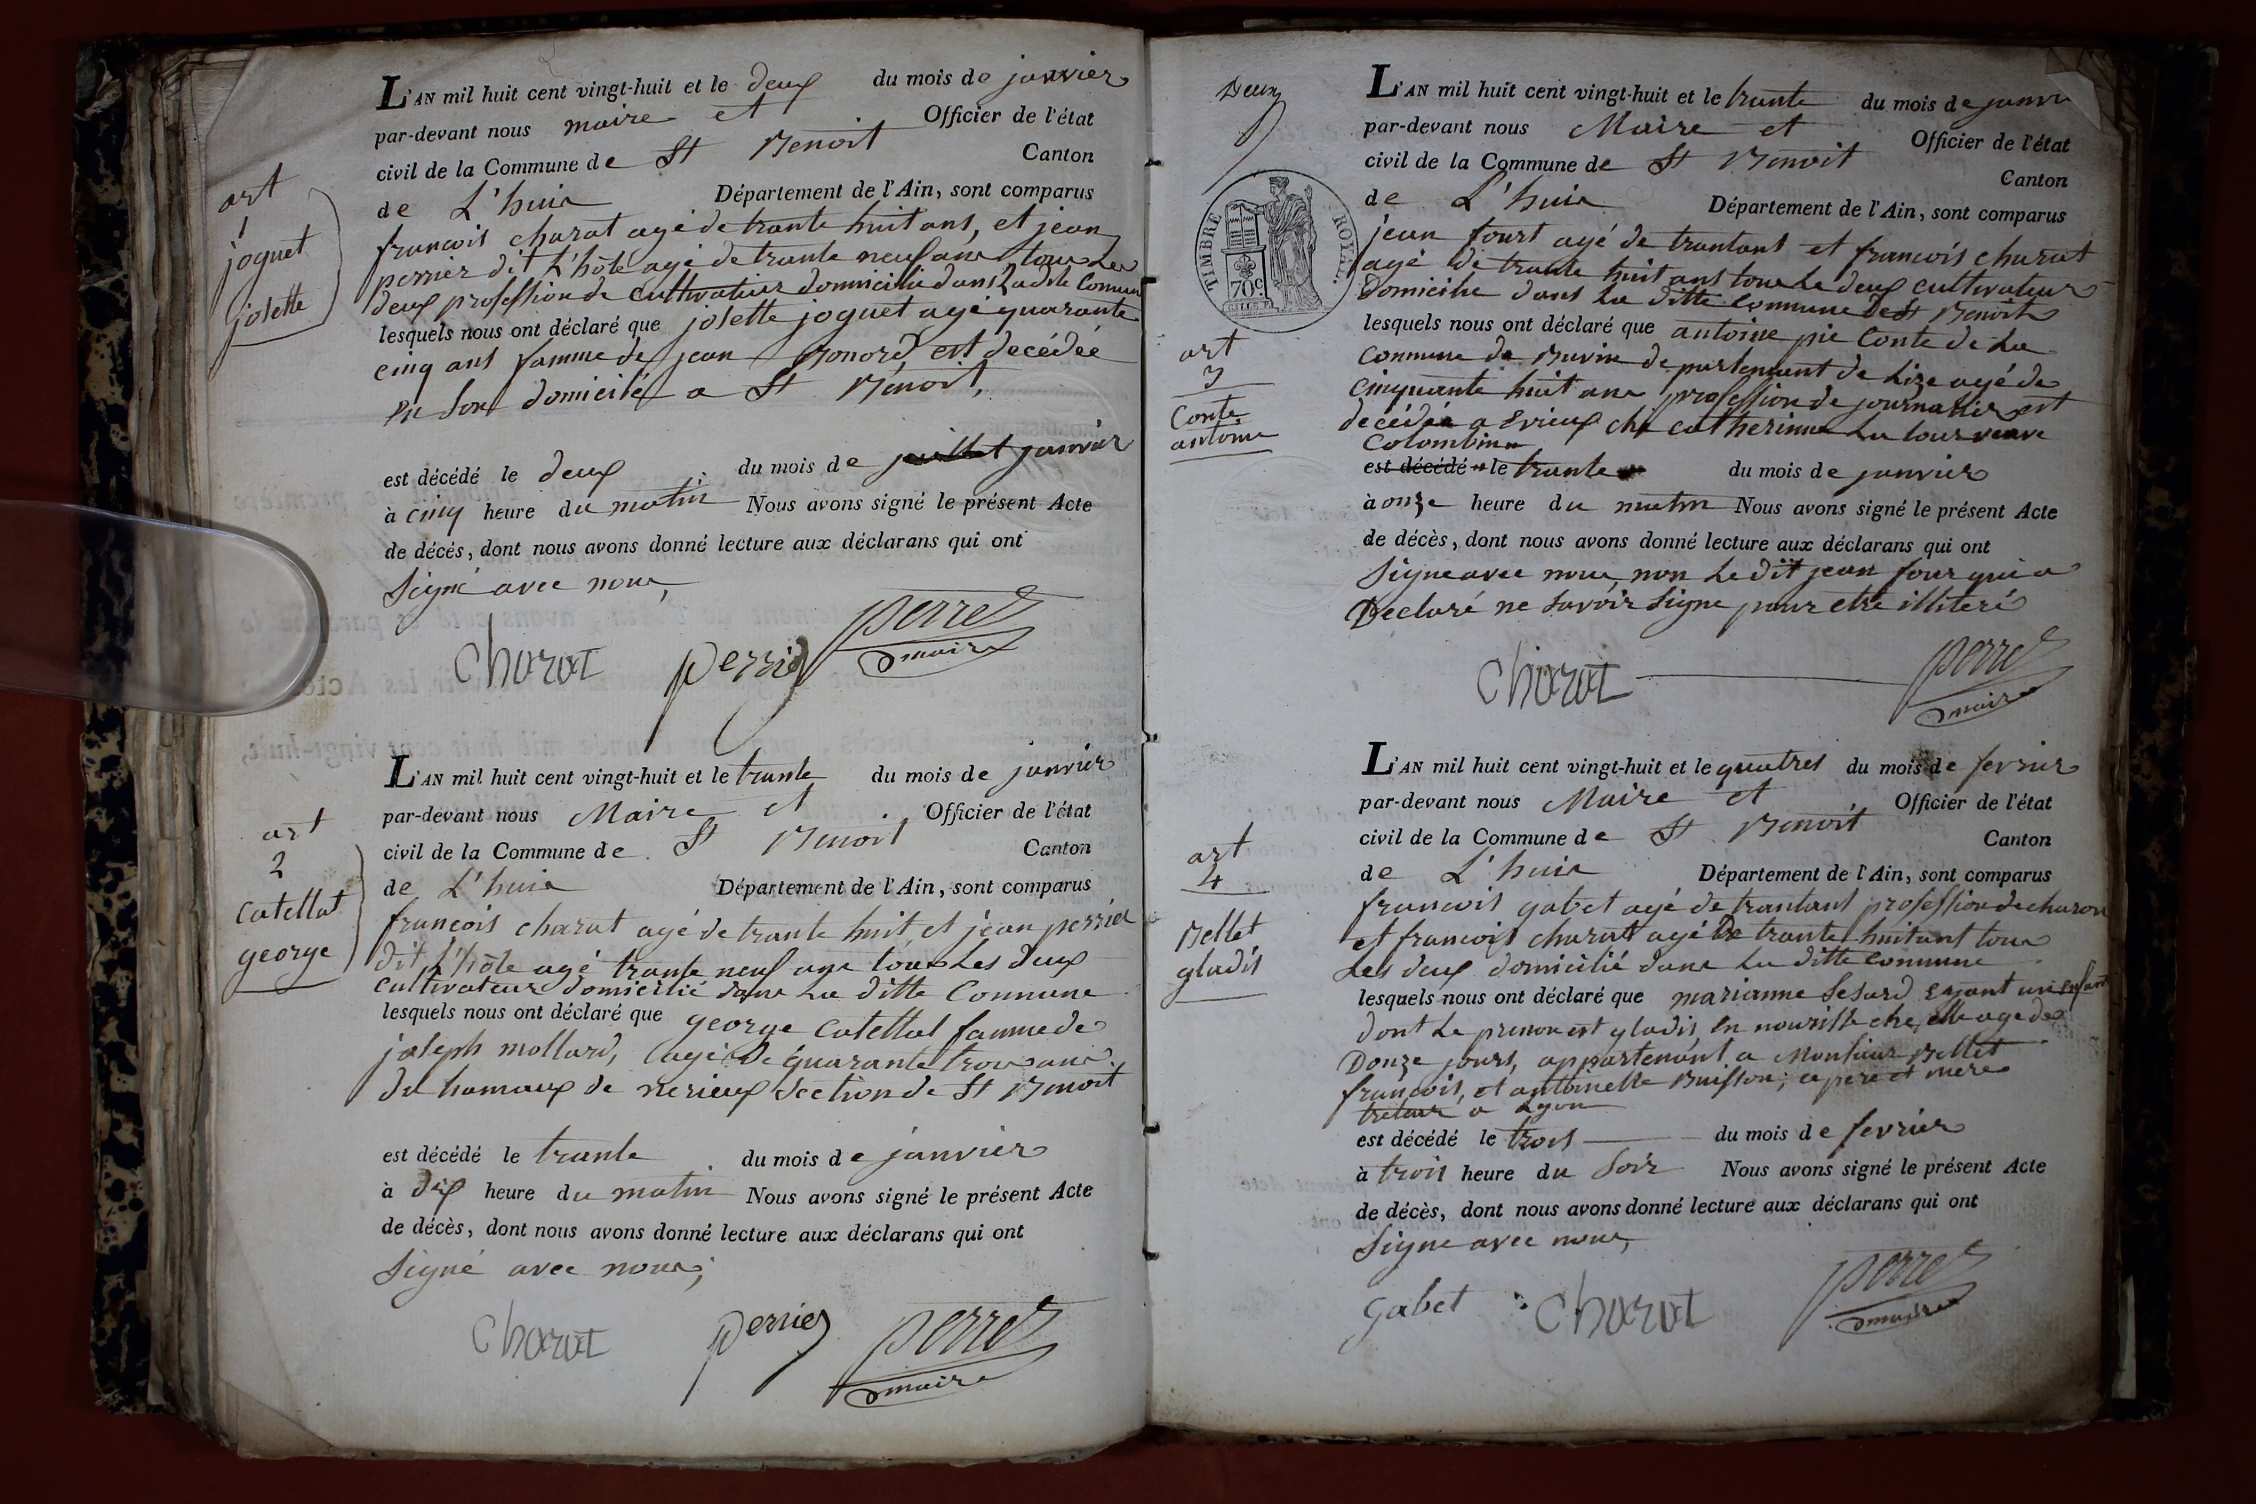 art
1
joguet
josette
L'AN mil huit cent vingt-huit et le deux du mois de janvier
par-devant nous maire et Officier de l'état
civil de la Commune de St Benoit Canton
de L'huis Département de l'Ain, sont comparus
francois charat agé de trante huit ans, et jean
perrier dit L'hôte agé de trante neuf ans tous Les
deux profession de cultivateur domicilié dans La dite Commune
lesquels nous ont déclaré que josette joguet agé quarante
cinq ans famme de jean Bonord est decédée
en son domicile a St Benoit,
est décédé le deux du mois de juillet janvier
à cinq heure du matin Nous avons signé le présent Acte
de décès, dont nous avons donné lecture aux déclarans qui ont
signé avec nous,
Charat perrier perret
maire
art
2
catellat
george
L'AN mil huit cent vingt-huit et le trante du mois de janvier
par-devant nous Maire et Officier de l'état
civil de la Commune de St Benoit Canton
de L'huis Département de l'Ain, sont comparus
francois charat agé de trante huit, et jean perrier
dit L'hôte agé trante neuf ans tous Les deux
cultivateur domicilié dans La ditte Commune
lesquels nous ont déclaré que george catellat famme de
joseph mollard, agé de quarante trois ans
du hamaux de verieux section de St Benoit
est décédé le trante du mois de janvier
à dix heure du matin Nous avons signé le présent Acte
de décès, dont nous avons donné lecture aux déclarans qui ont
signé avec nous;
Charat perrier perret
maire
Deux
TIMBRE ROYAL
70c
art
3
Conte
antoine
L'AN mil huit cent vingt-huit et le trante du mois de janvi
par-devant nous Maire et Officier de l'état
civil de la Commune de St Benoit Canton
de L'huis Département de l'Ain, sont comparus
jean fourt agé de trantans et francois charat
agé de trante huit ans tous Le deux cultivateur
Domicilié dans La ditte commune de St Benoit
lesquels nous ont déclaré que antoine pie Conte de La
commune de Buvin departement de Lize agé de
cinquante huit ans profession de journalier est
decédé a Evieux ché catherinne La tour veuve
Colombin
est décédé le trante du mois de janvier
à onze heure du matin Nous avons signé le présent Acte
de décès, dont nous avons donné lecture aux déclarans qui ont
Signe avec nous, non Le dit jean four qui a
Declaré ne savoir signe pour etre illiteré
Charat perret
maire
art
4
Bellet
gladis
L'AN mil huit cent vingt-huit et le quatres du mois de fevrier
par-devant nous Maire et Officier de l'état
civil de la Commune de St Benoit Canton
de L'huis Département de l'Ain, sont comparus
francois gabet agé de trantans profession de charon
et francois charat agé de trante huit ans tous
Les deux domicilié dans La ditte commune
lesquels nous ont déclaré que marianne Sesard eyant un enfant
dont Le prenon est gladis, en nourisse ché elle age de
Donze jours, appartenant a Monsieur Bellet
francois, et antoinette Buisson; ce pere et mere
a Lyon
est décédé le trois du mois de fevrier
à trois heure du soir Nous avons signé le présent Acte
de décès, dont nous avons donné lecture aux déclarans qui ont
Signe avec nous,
Gabet Charat perret
maire